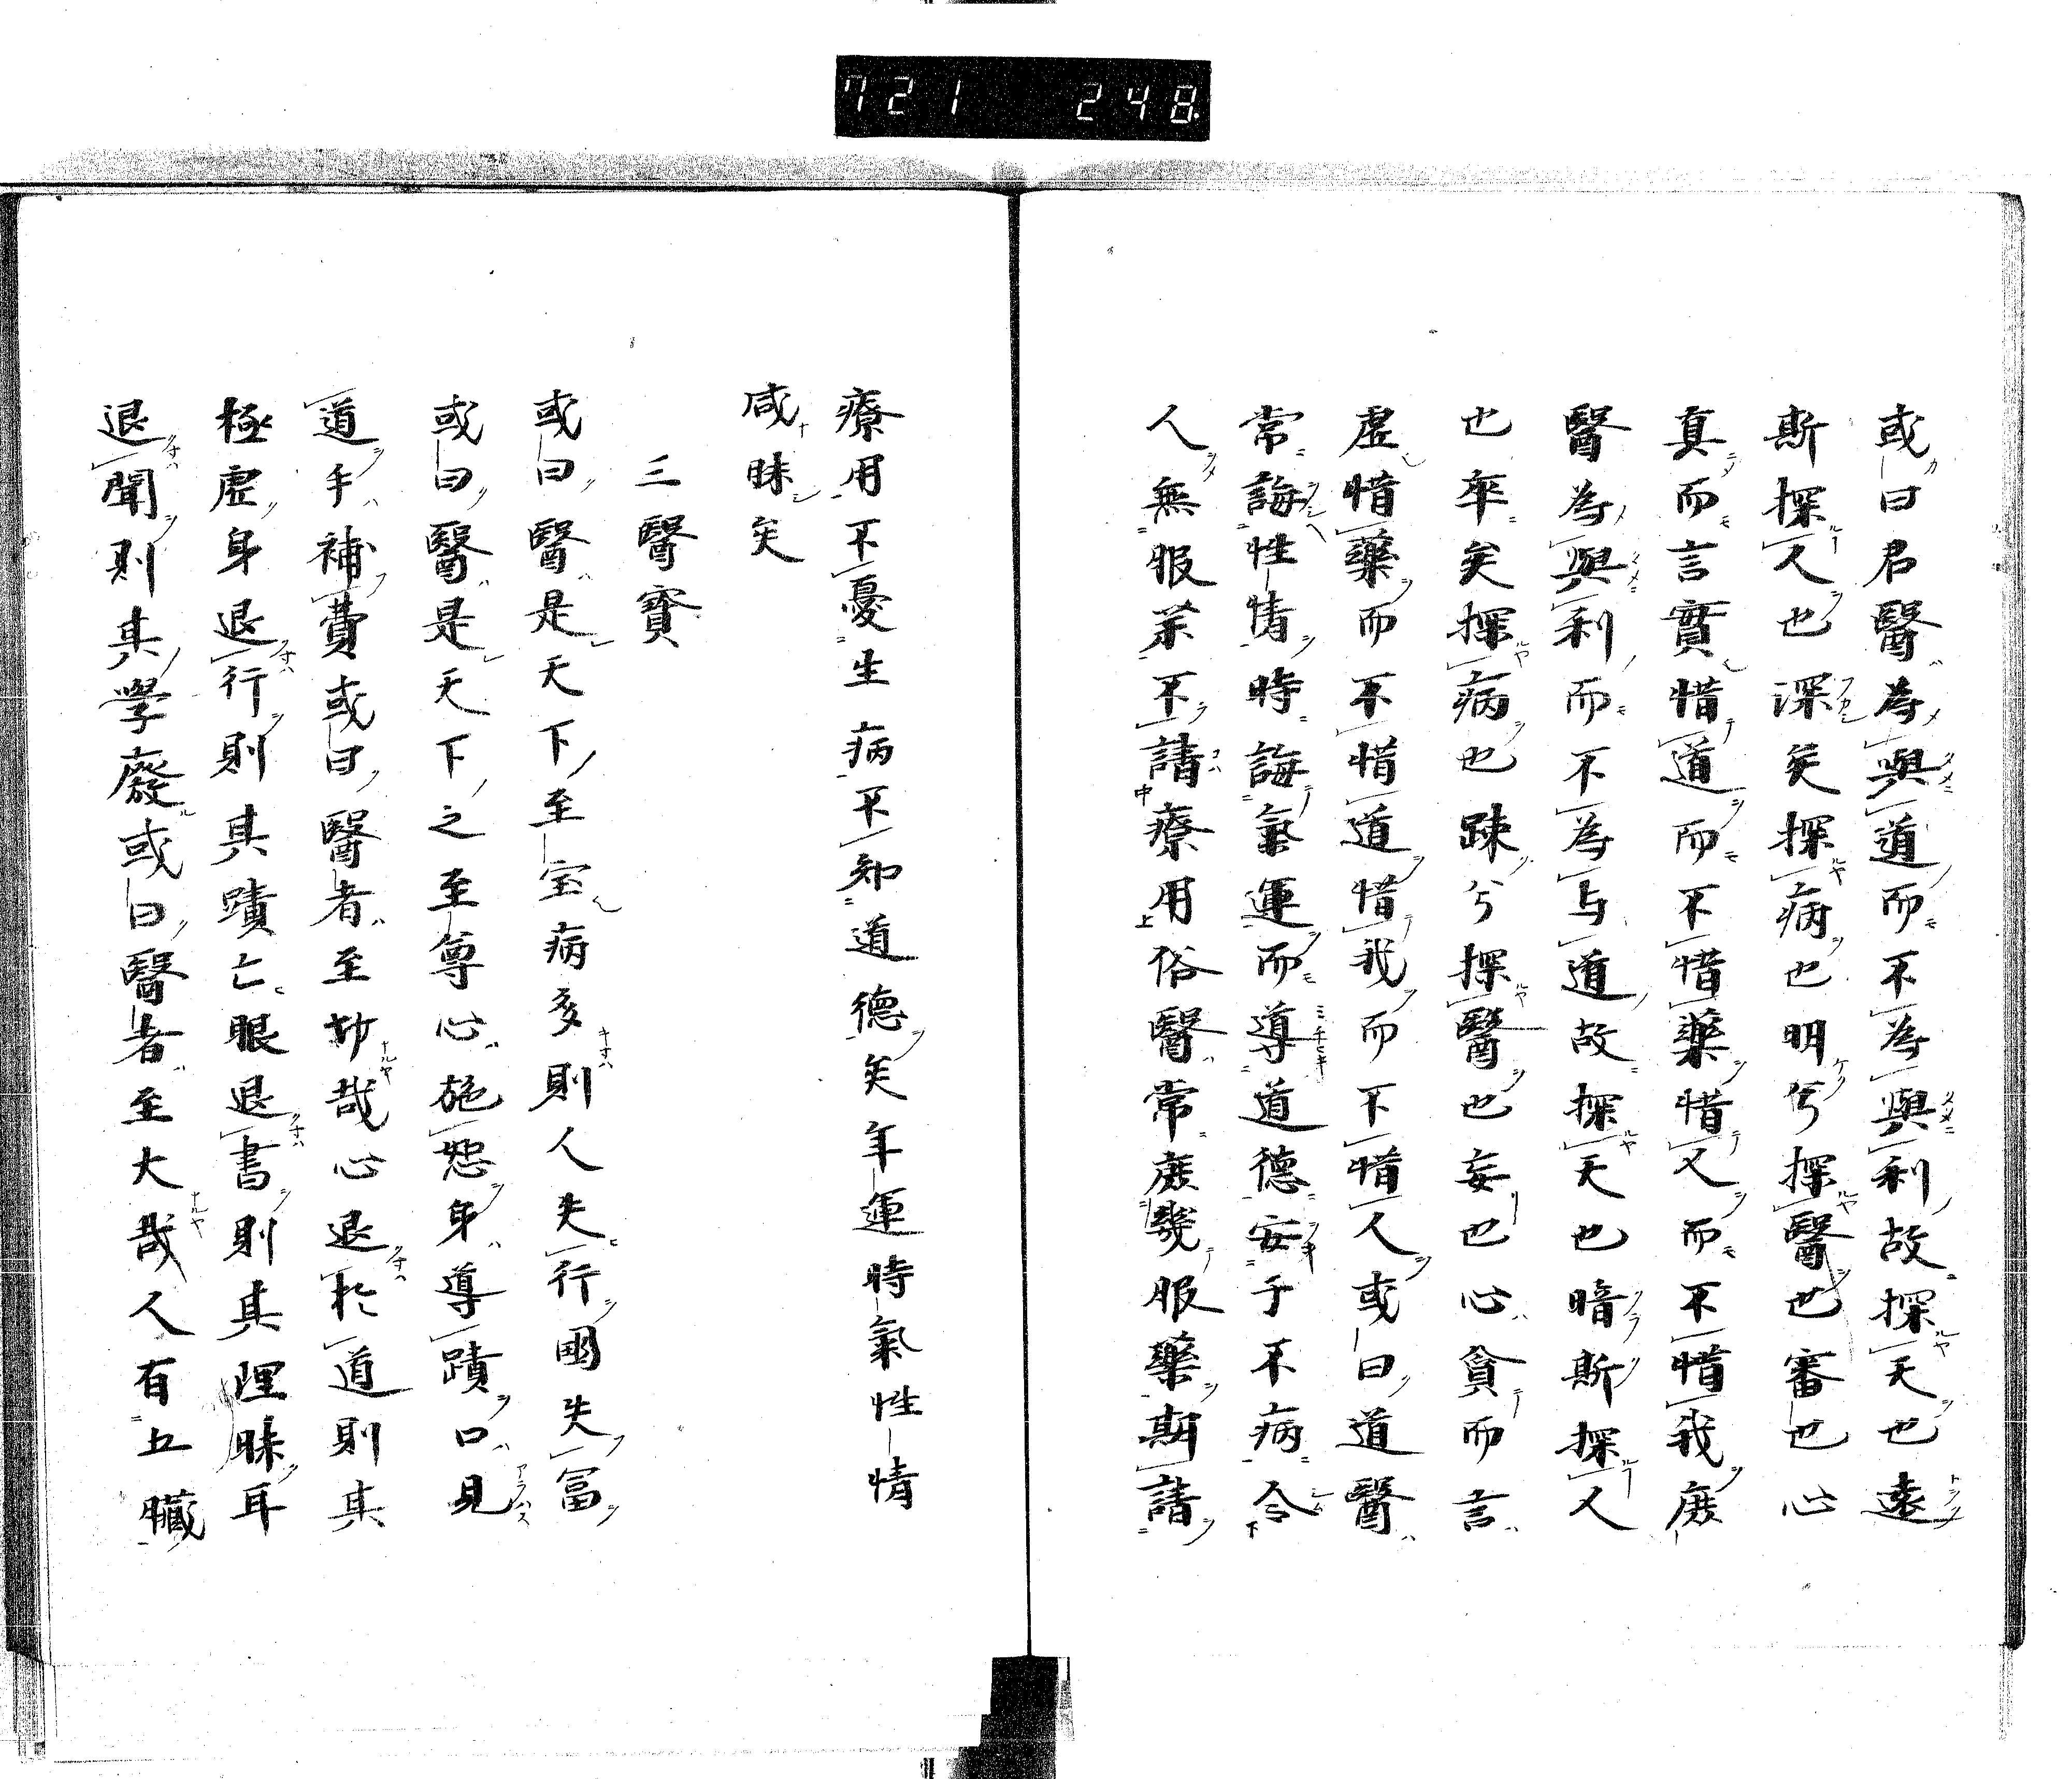 721 248
或曰君醫為與道而不為與利故探天也遠
斯探人也深矣探病也明兮探醫也審也心
真而言實惜道而不惜藥惜人而不惜我庶
醫為與利而不為与道故探天也暗斯探人
也卒矣探病也踈兮探醫也妄也心貪而言
虚惜藥而不惜道惜我而不惜人或曰道醫
常誨性情時誨氣運而導道德安于不病令
人無服茶不請療用俗醫常庶幾服藥期請
療用不憂生病不知道德矣年運時氣性情
咸昧矣
三醫寳
或曰醫是天下至宝病多則人失行國失冨
或曰醫是天下之至尊心施恕身導蹟口見
道手補費或曰醫者至切哉心退於道則其
極虚身退行則其蹟亡眼退書則其理昧耳
退聞則其學廢或曰醫者至大哉人有五臓